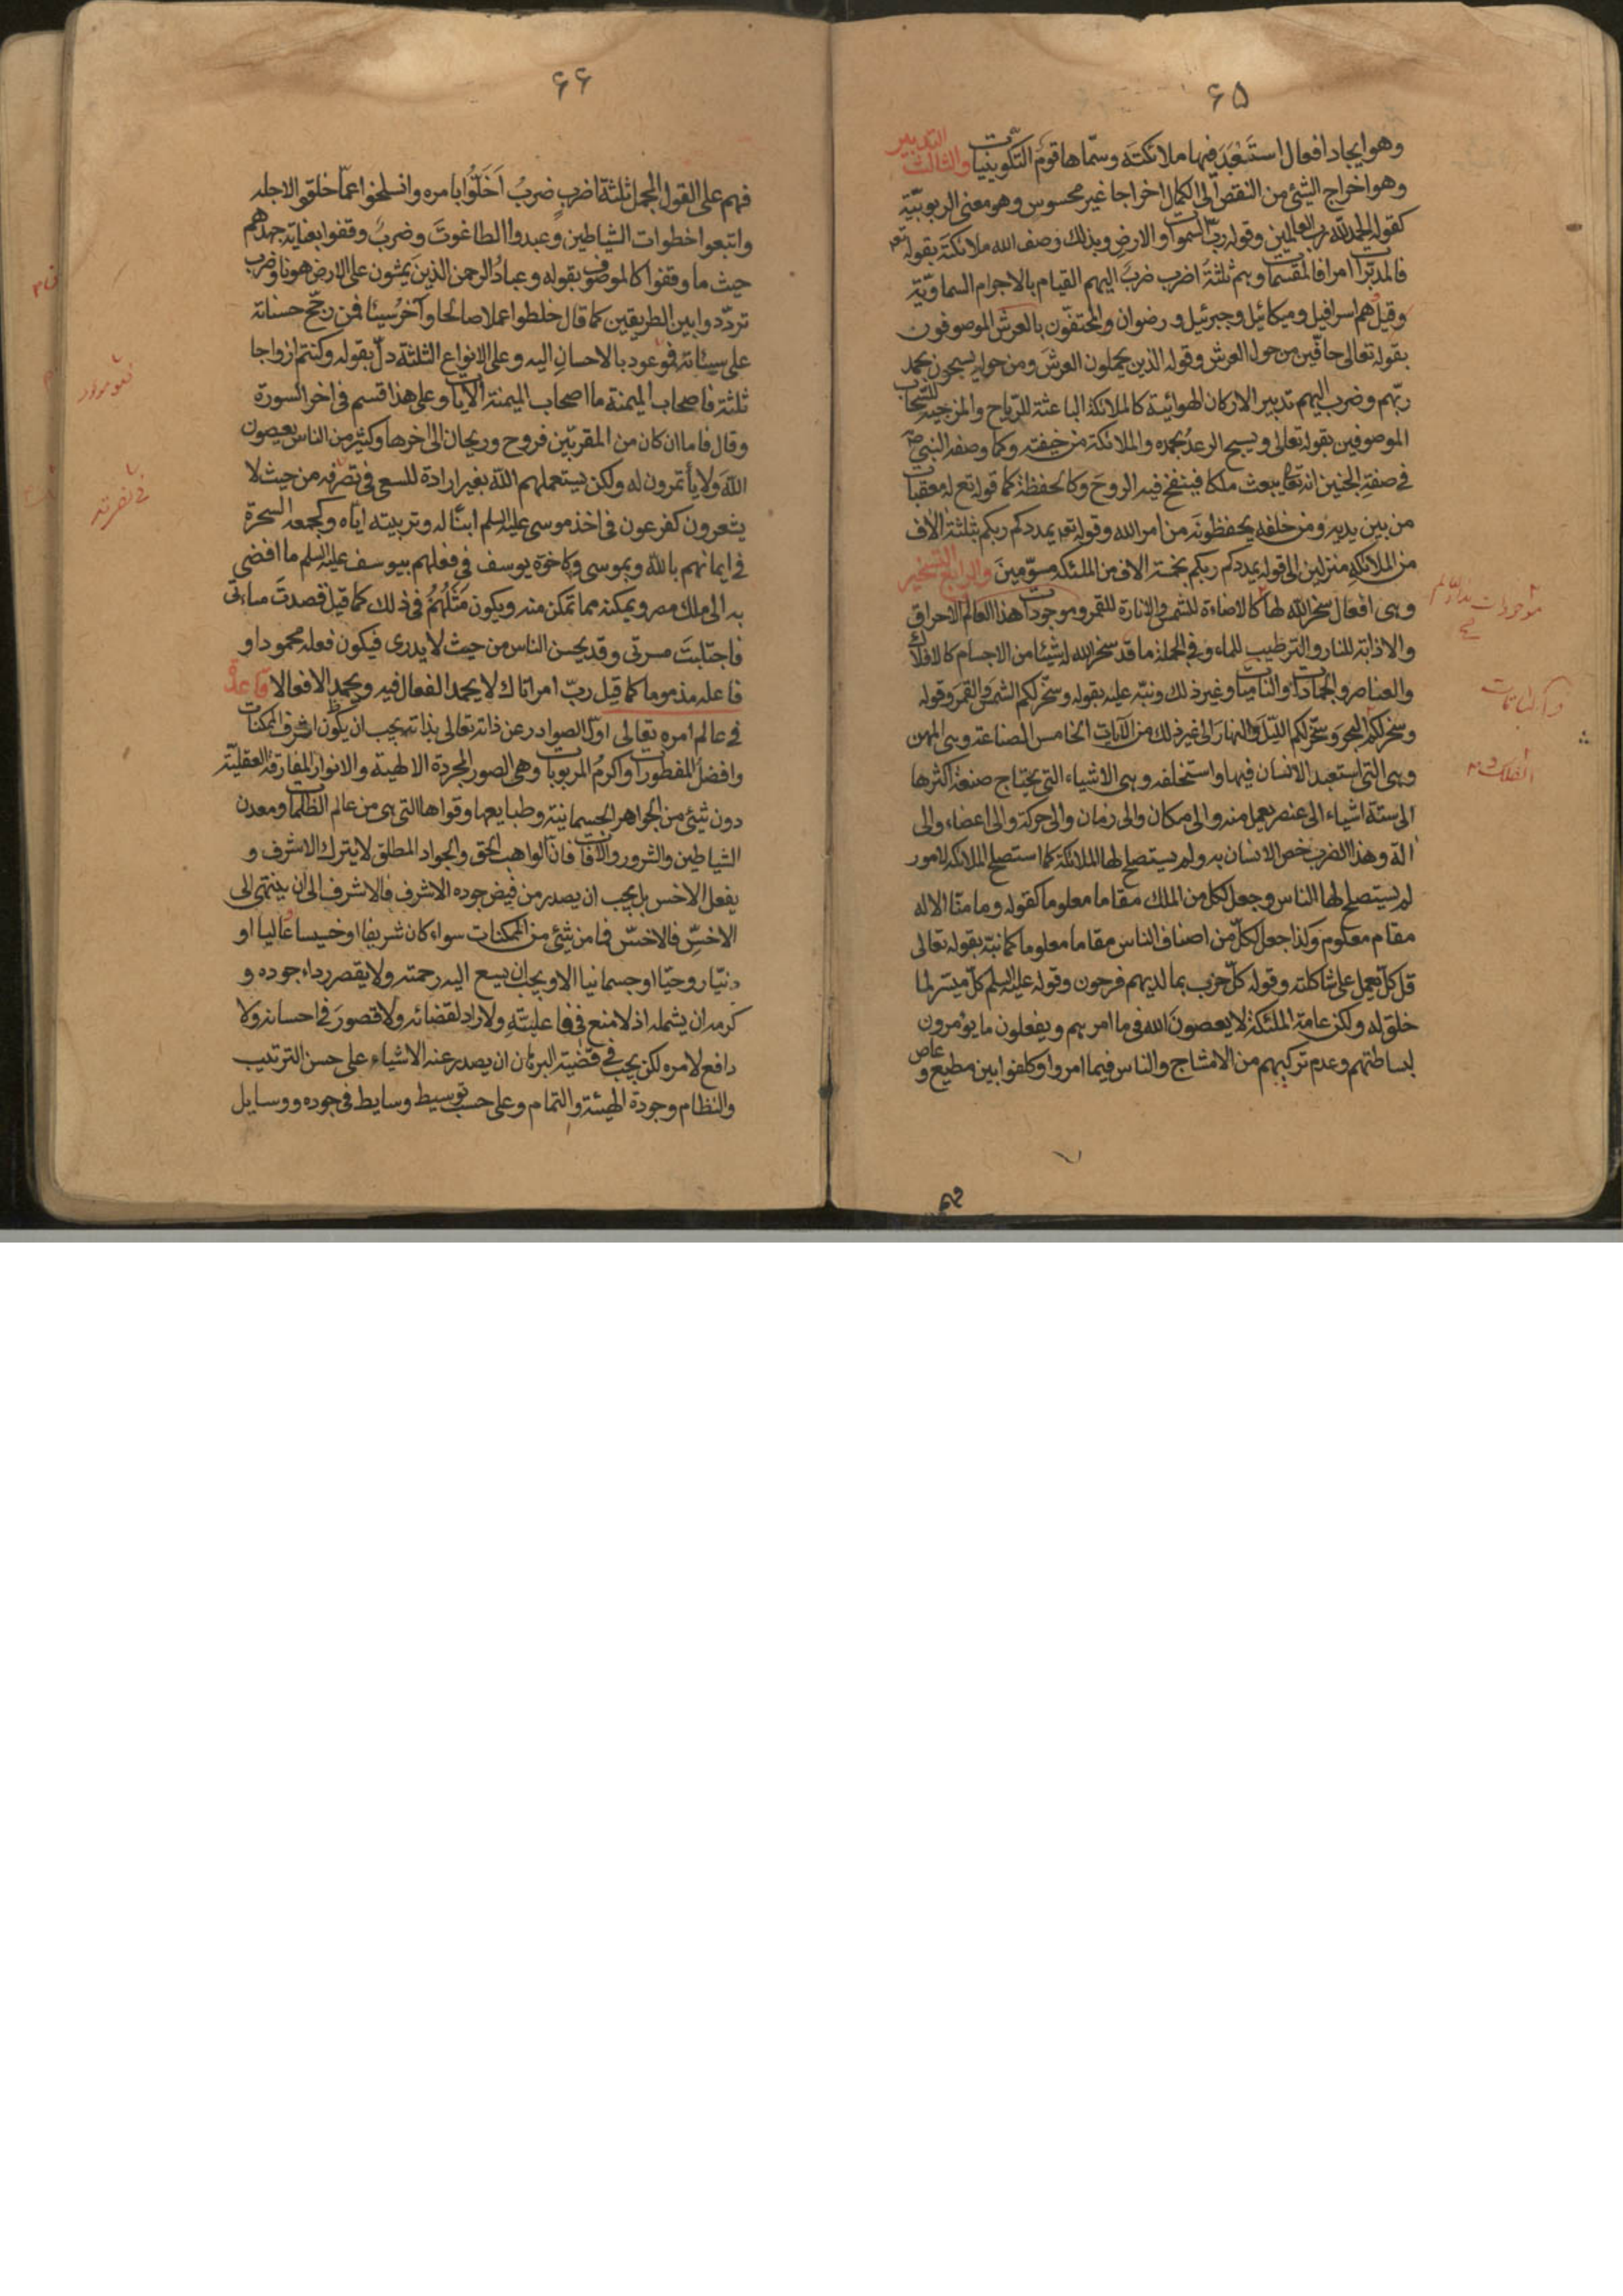 ۶۵
وهو ايجاد افعال استَبعَدَ فيها ملائكتَه وسمّاها قوم التكوينيات والثالث التدبير
وهو اخراج الشيئ من النقص الى الكمال اخراجا غير محسوس وهو معنى الربوبيّة
كقوله الحمد لله رب العالمين وقوله ربّ السموات والارض وبذلك وصف الله ملائكته بقوله تعه
فالمدبّرات امرا فالمقسمات وهم ثلثة اضرب ضرب اليهم القيام بالاجرام السماويّة
وقيل هم اسرافيل وميكائيل وجبرئيل ورضوان والمحتفّون بالعرش الموصوفون
بقوله تعالى حافّين من حول العرش وقوله الذين يحملون العرش ومن حوله يسبحون بحمد
ربّهم وضرب اليهم تدبير الاركان الهوائية كالملائكة الباعثة للرّياح والمزجية للسّحاب
الموصوفين بقوله تعالى ويسبح الرعد بحمده والملائكة من خيفته وكما وصفه النبي ص
في صفة الجنين انه تعا يبعث ملكا فينفخ فيه الروحَ وكالحفظة كما قوله تع له معقبات
من بين يديه ومن خلفه يحفظونه من امر الله وقوله تعه يمددكم ربكم بثلثة الاف
من الملائكة منزلين الى قوله يمددكم ربكم بخمسة الاف من الملئكة مسوّمين والرابع التسخير
وهى افعال سخر الله لها كالاضاءة للشمس والانارة للقمر وموجودات هذا العالم الاحراق
والاذابة للنار والترطيب للماء وفي الجملة ما قد سخر الله له شيئا من الاجسام كالافلاك
والعناصر والجمادات والناميات وغير ذلك ونبّه عليه بقوله وسخّر لكم الشمس والقمر وقوله
وسخر لكم البحر وسخّر لكم الليل والنهار الى غير ذلك من الآيات الخامس الصناعة وهى المهن
وهى التى استعبد الانسان فيها واستخلفه وهى الاشياء التى يحتاج صنعة اكثرها
الى ستة اشياء الى عنصر يعمل منه والى مكان والى زمان والى حركة والى اعضاء والى
الة وهذا الضرب خص الانسان به ولم يستصلح لها الملائكة كما استصلح الملائكة لامور
لم يستصلح لها الناس وجعل لكل من الملك مقاما معلوما كقوله وما منّا الا له
مقام معلوم وكذا جعل لكلّ من اصناف الناس مقاما معلوما كما نبّه بقوله تعالى
قل كلّ يعمل على شاكلته وقوله كلّ حزب بما لديهم فرحون وقوله عليه السلم كلّ ميسّر لما
خلق له ولكن عامة الملئكة لا يعصون الله في ما امرهم ويفعلون ما يؤمرون
لبساطتهم وعدم تركبهم من الامشاج والناس فيما امروا وكلفوا بين مطيع وعاص
۶۶
فهم على القول المجمل ثلثة اضرب ضربٌ اَخَلّوُا بامره وانسلخوا عمّا خلق الاجله
واتبعوا خطوات الشياطين وعبدوا الطاغوت وضربٌ وقفوا بغاية جهدهم
حيث ما وقفوا كالموصوف بقوله وعباد الرحمن الذين يمشون على الارض هونا وضرب
تردّدوا بين الطريقين كما قال خلطوا عملا صالحا وآخر سيئا فمن رجّح حسناته
على سيئاته فموعود بالاحسان اليه وعلى الانواع الثلثة دلّ بقوله وكنتم ازواجا
ثلثة فاصحاب الميمنة ما اصحاب الميمنة الآيات وعلى هذا قسم في اخر السورة
وقال فاما ان كان من المقربّين فروح وريحان الى اخرها وكثير من الناس يعصون
اللهَ ولا يأتمرون له ولكن يستعملهم الله بغير ارادة للسعى فى تصرفه من حيث لا
يشعرون كفرعون في اخذ موسى عليه السلم ابنًا له وتربيته ايّاه وكجمعه السحرة
في ايمانهم بالله وبموسى وكاخوة يوسف في فعلهم بيوسف عليه السلم ما افضى
به الى ملك مصر ويمكنه مما تمكن منه ويكون مَثَلُهُمْ في ذلك كما قيل قصدتَ مساءتى
فاجتلبتَ مسرتى وقد يحسن الناس من حيث لا يدرى فيكون فعله محمودا و
فاعله مذموما كما قيل ربّ امر اتاك لا يحمد الفعال فيه ويحمد الافعالا قاعدة
في عالم امره تعالى اوّل الصوادر عن ذاته تعالى بذاته يجب ان يكون اشرف الممكنات
وافضل المفطورات واكرم المربوبات وهى الصور المجردة الالهية والانوار المفارقة العقليّة
دون شيئ من الجواهر الجسمانية وطبايعها وقواها التى هى من عالم الظلمات ومعدن
الشياطين والشرور والآفات فانّ الواهب الحق والجواد المطلق لا يترك الاشرف و
يفعل الاخس بل يجب ان يصدر من فيض جوده الاشرف فالاشرف الى ان ينتهى الى
الاخسّ فالاخسّ فما من شيئ من الممكنات سواء كان شريفا او خسيسا عاليا او
دنيّا روحيّا او جسمانيا الا ويجب ان يسع اليه رحمته ولا يقصر رداء جوده و
كرمه ان يشمله اذ لا منع فى فاعليّته ولا راد لقضائه ولا قصورَ فى احسانه ولا
دافع لامره لكن يجب فى قضية البرهان ان يصدر عنه الاشياء على حسن الترتيب
والنظام وجودة الهيئة والتمام وعلى حسب توسيط وسايط فى جوده ووسايل